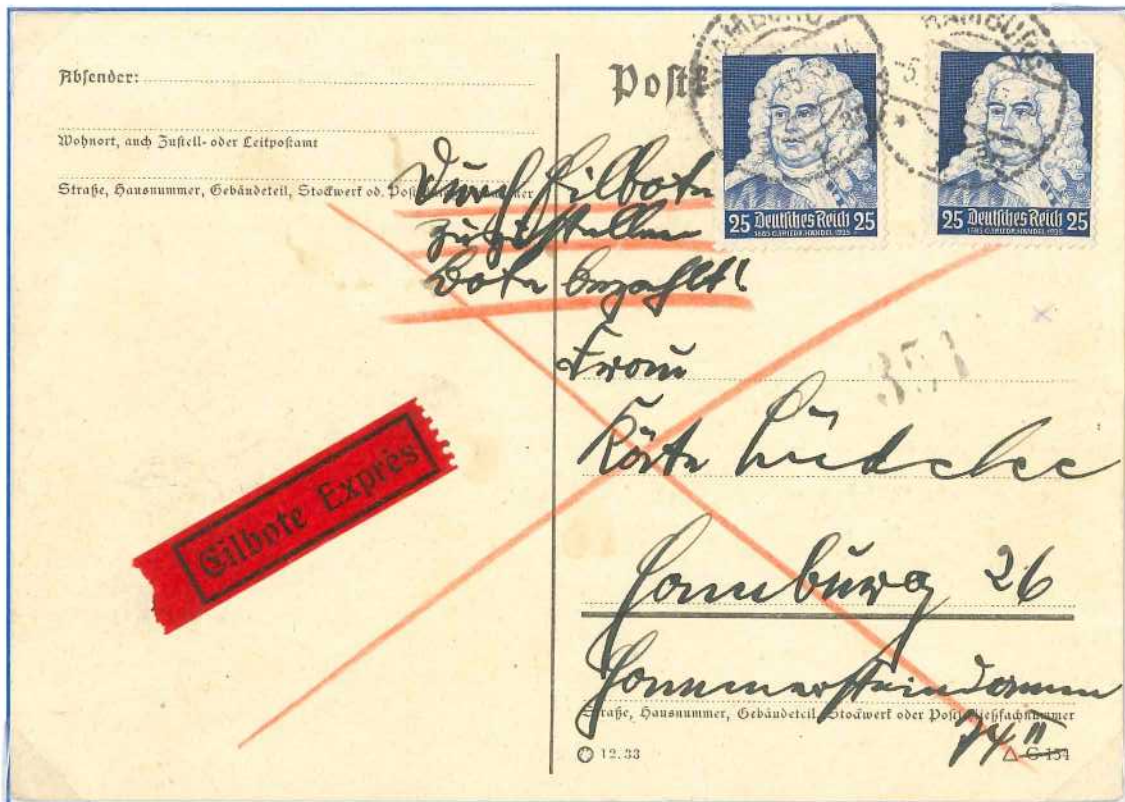 Absender:
Wohnort, auch Zustell- oder Leitpostamt
Straße, Hausnummer, Gebäudeteil, Stockwerk od. Post
Postk
HAMBURG
HAMBURG
25 Deutsches Reich 25
1685 G.FRIEDR.HÄNDEL 1935
25 Deutsches Reich 25
1685 G.FRIEDR.HÄNDEL 1935
Durch Eilbote
zuzustellen
Bote bezahlt!
351
Frau
Käte Lüdcke
Eilbote Exprès
Hamburg 26
Hammersteindamm
Straße, Hausnummer, Gebäudeteil, Stockwerk oder Postschließfachnummer
II
12.33
C 154